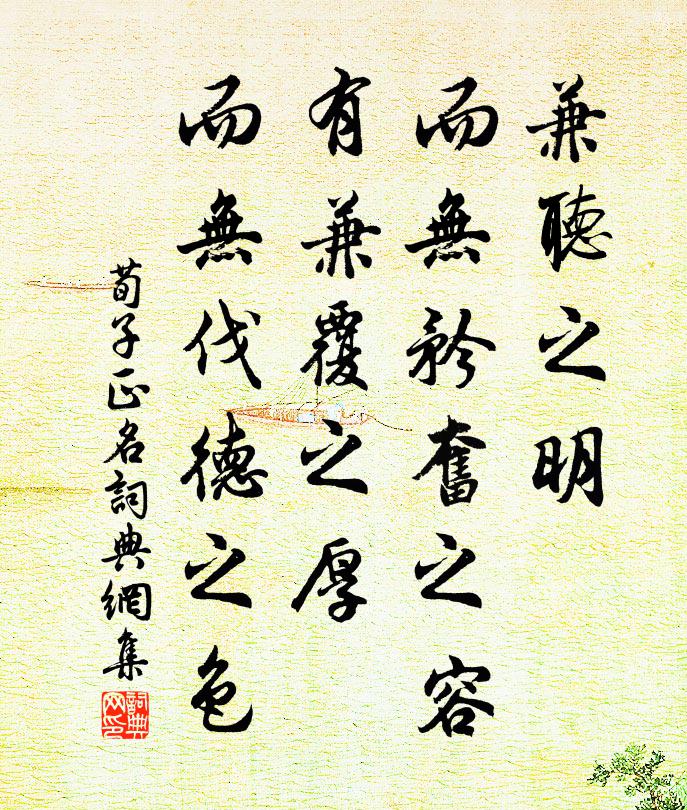 兼聽之明
而無矜奮之容
有兼覆之厚
而無伐德之色
荀子正名詞典網集
詞典网印